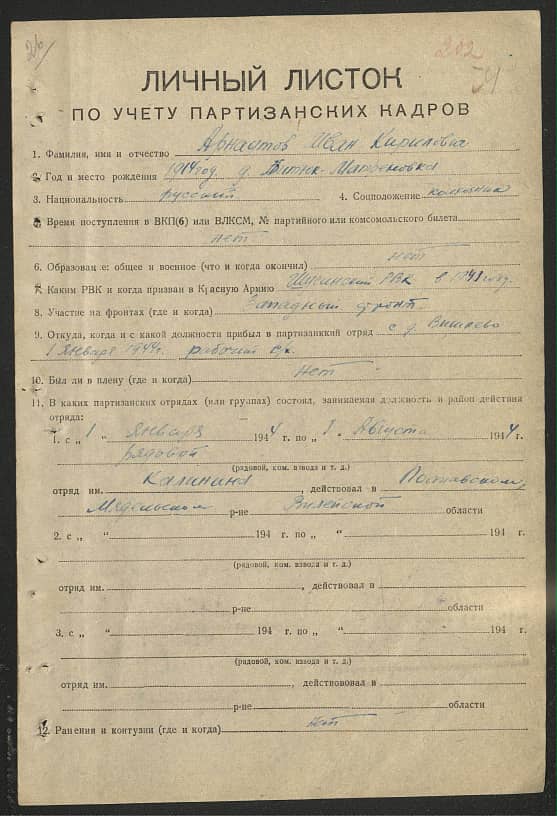 26
202
ЛИЧНЫЙ ЛИСТОК
ПО УЧЕТУ ПАРТИЗАНСКИХ КАДРОВ
1. Фамилия, имя и отчество Арнаутов Иван Кирилович
2. Год и место рождения 1914 год д.
3. Национальность русский 4. Соцположение колхозник
5. Время поступления в ВКП(б) или ВЛКСМ, № партийного или комсомольского билета
нет
6. Образование: общее и военное (что и когда окончил) нет
7. Каким РВК и когда призван в Красную Армию РВК в 1941 году.
8. Участие на фронтах (где и когда) Западный фронт.
9. Откуда, когда и с какой должности прибыл в партизанский отряд с д.
1 января 1944 г. рабочий с/х.
10. Был ли в плену (где и когда) Нет
11. В каких партизанских отрядах (или группах) состоял, занимаемая должность и район действия
отряда:
1. с „ 1 “ января 1944 г. по „ 1 “ Августа 1944 г.
рядовой
(рядовой, ком. взвода и т. д.)
отряд им. Калинина, действовал в Поставском,
Мядельском р-не Вилейской области
2. с „ “ 194 г. по „ “ 194 г.
(рядовой, ком. взвода и т. д.)
отряд им. , действовал в
р-не области
3. с „ “ 194 г. по „ “ 194 г.
(рядовой, ком. взвода и т. д.)
отряд им. , действововал в
р-не области
12. Ранения и контузии (где и когда) нет